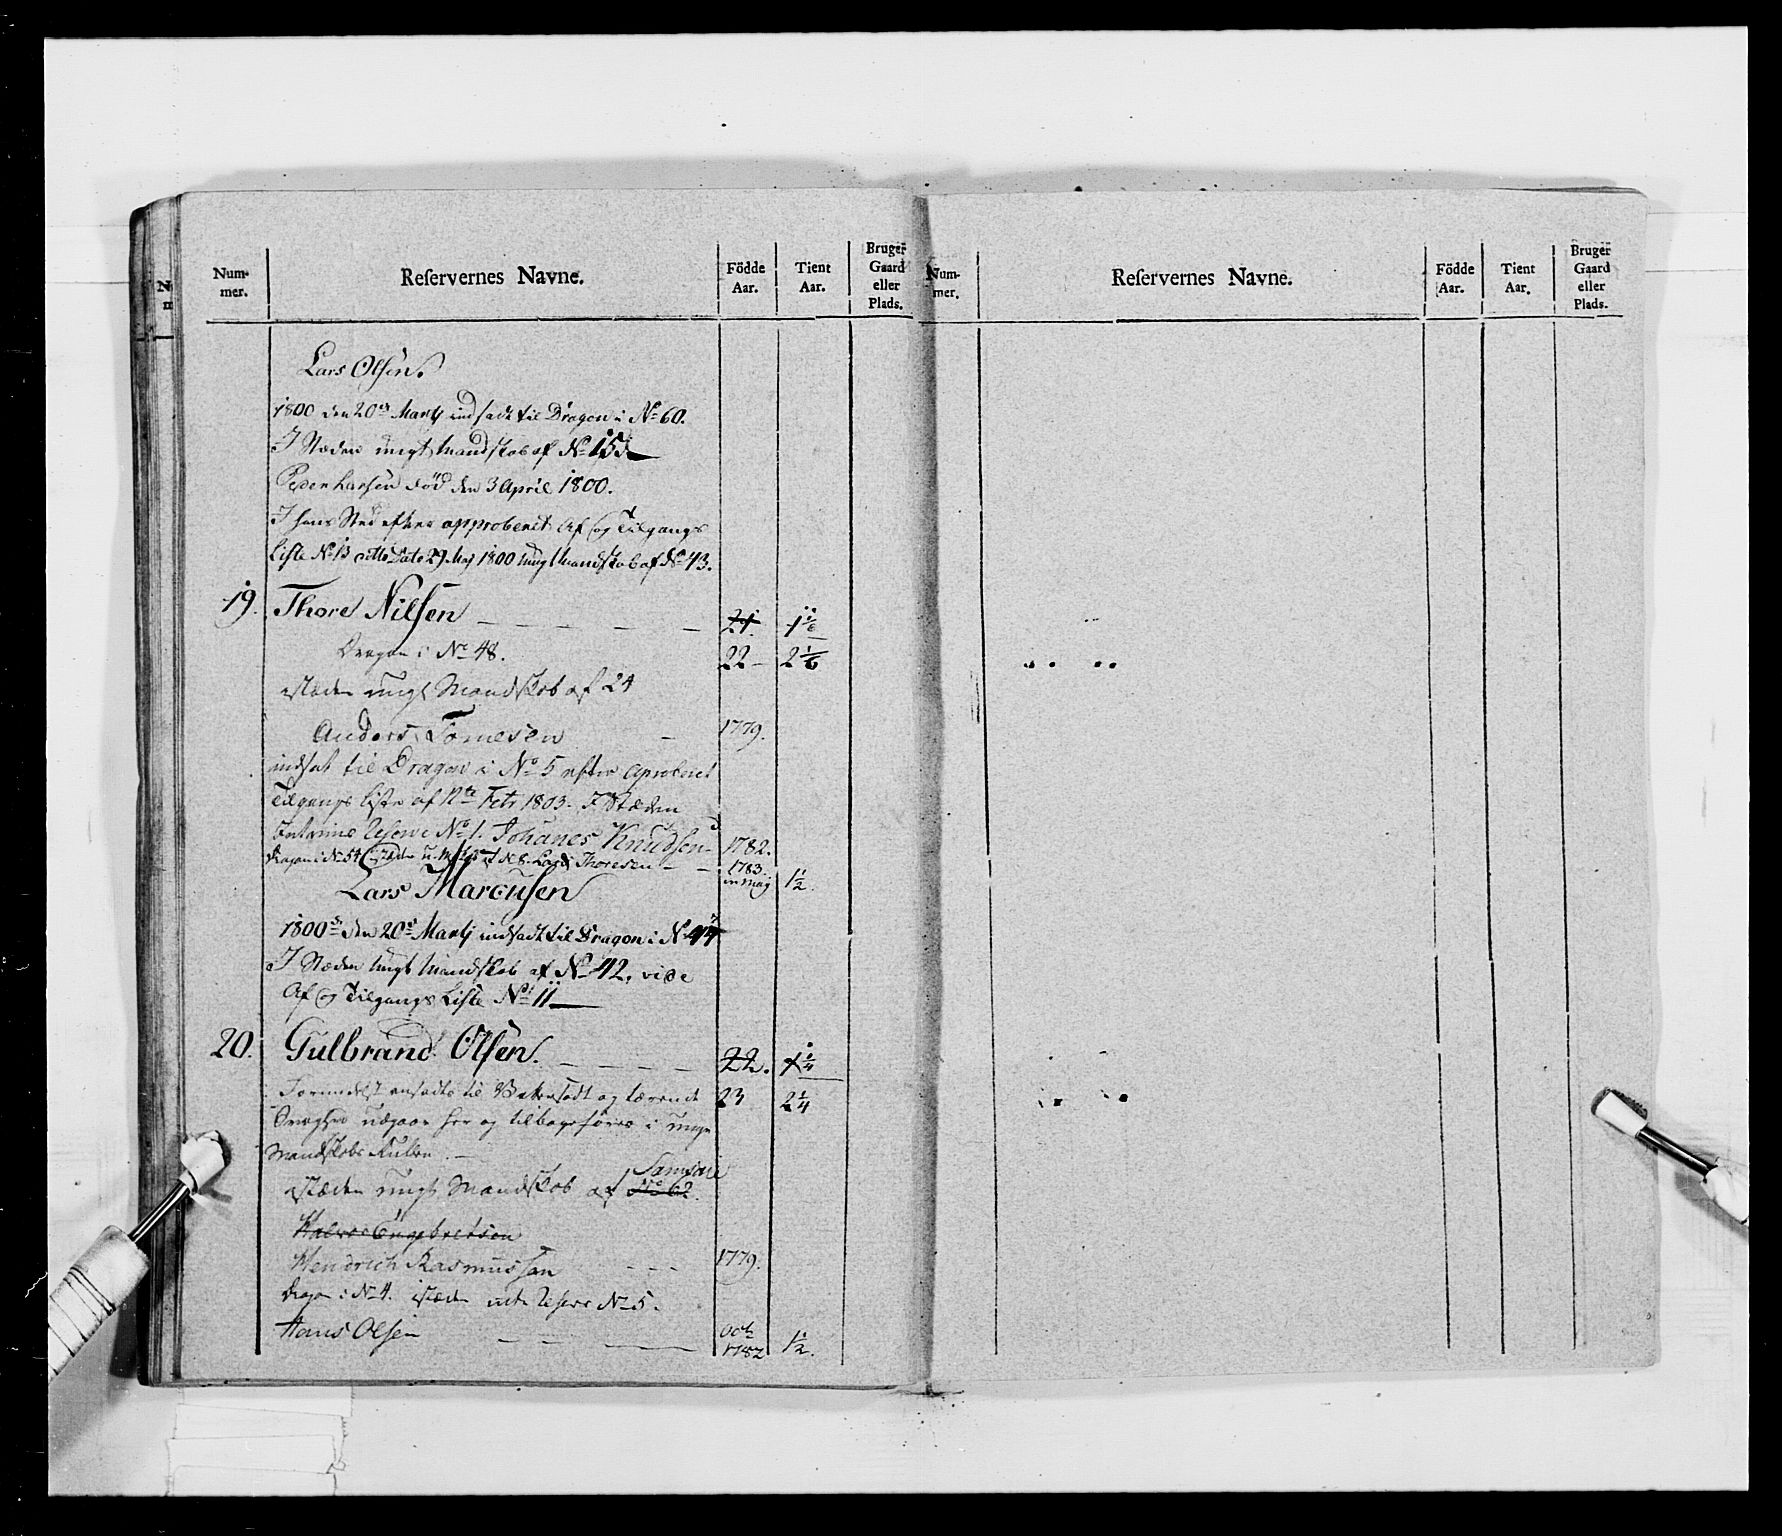 Num-
mer.
Reservernes Navne.
Födde
Aar.
Tient
Aar.
Bruger
Gaard
eller
Plads.
Lars Olsen.
1800 den 20de Martj indsadt til Dragon i No 60.
I Stæden ungt Mandskab af No 15
Peder Larsen död den 3 April 1800.
I hans Sted efter approberet Af og Tilgangs
Liste No 13 dato 29 Maj 1800 ungt Mandskab af No 43.
19. Thore Nilsen 21. 1 1/6
Dragon i No 48. 22 2 1/6
istæden ungt Mandskab af 24
Anders Tomesen 1779.
indsat til Dragon i No 5 efter aproberet
Tilgangs Liste af Febr 1803. I Stæden
Reserve No 1. Johanes Knudsen 1782.
Dragon i No 54 Lars Thoresen 1783 in Maj 1 1/2.
Lars Marcusen
1800 den 20de Martj indsadt til Dragon i No 47
I Stæden ungt Mandskab af No 42, vide
Af og Tilgangs Liste No 11
20. Gulbrand Olsen. 22. 1 1/4
formedelst ansadte til og lærende 23 2 1/4
udgaar her og tilbageföres i unge
Mandskabs Rullen.
istæden ungt Mandskab af No 62. Samsaie
Halvor Engebretsen
Hendrich Rasmussen 1779.
Dragon i No 4. istæden Reserve No 5.
Hans Olsen Octb 1782 1 1/2.
Num-
mer.
Reservernes Navne.
Födde
Aar.
Tient
Aar.
Bruger
Gaard
eller
Plads.